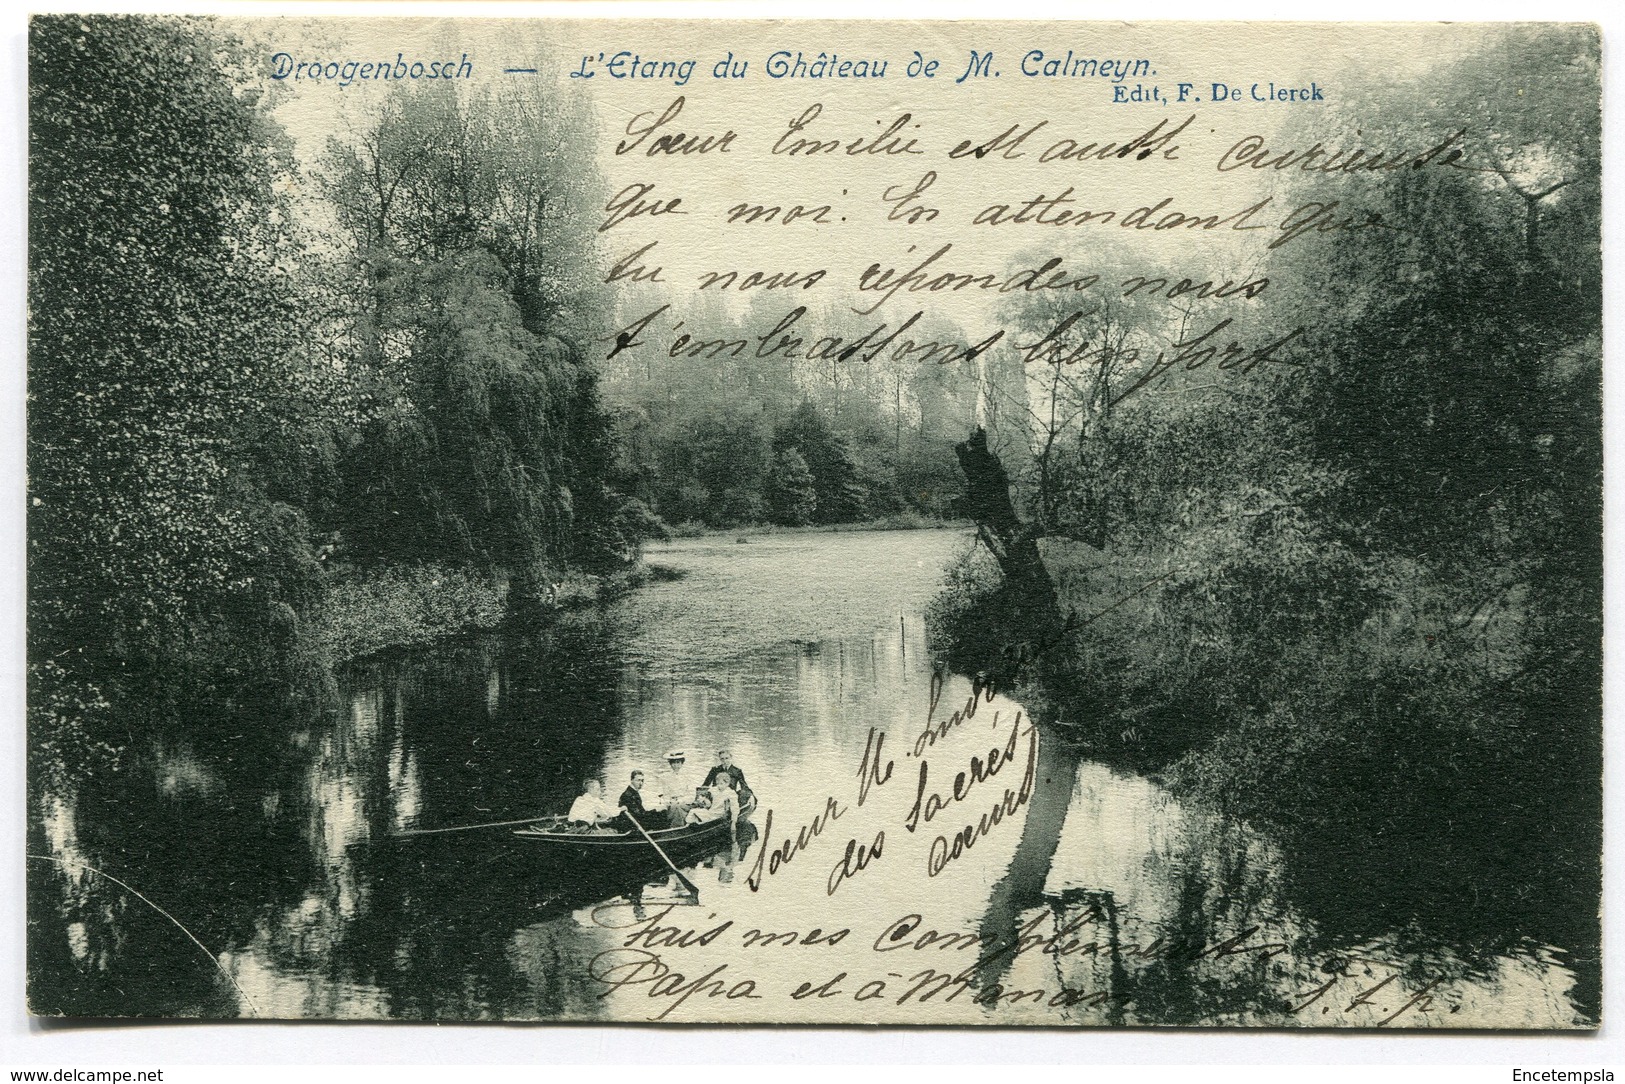 Droogenbosch — L'Etang du Château de M. Calmeyn.
Edit, F. De Clerck
Sœur Emilie est aussi curieuse
que moi. En attendant que
tu nous répondes nous
t'embrassons bien fort
Sœur M.
des Sacrés
Cœurs.
Fais mes compliments à
Papa et à Maman s.t.p.
delcampe.net
Encetempsla